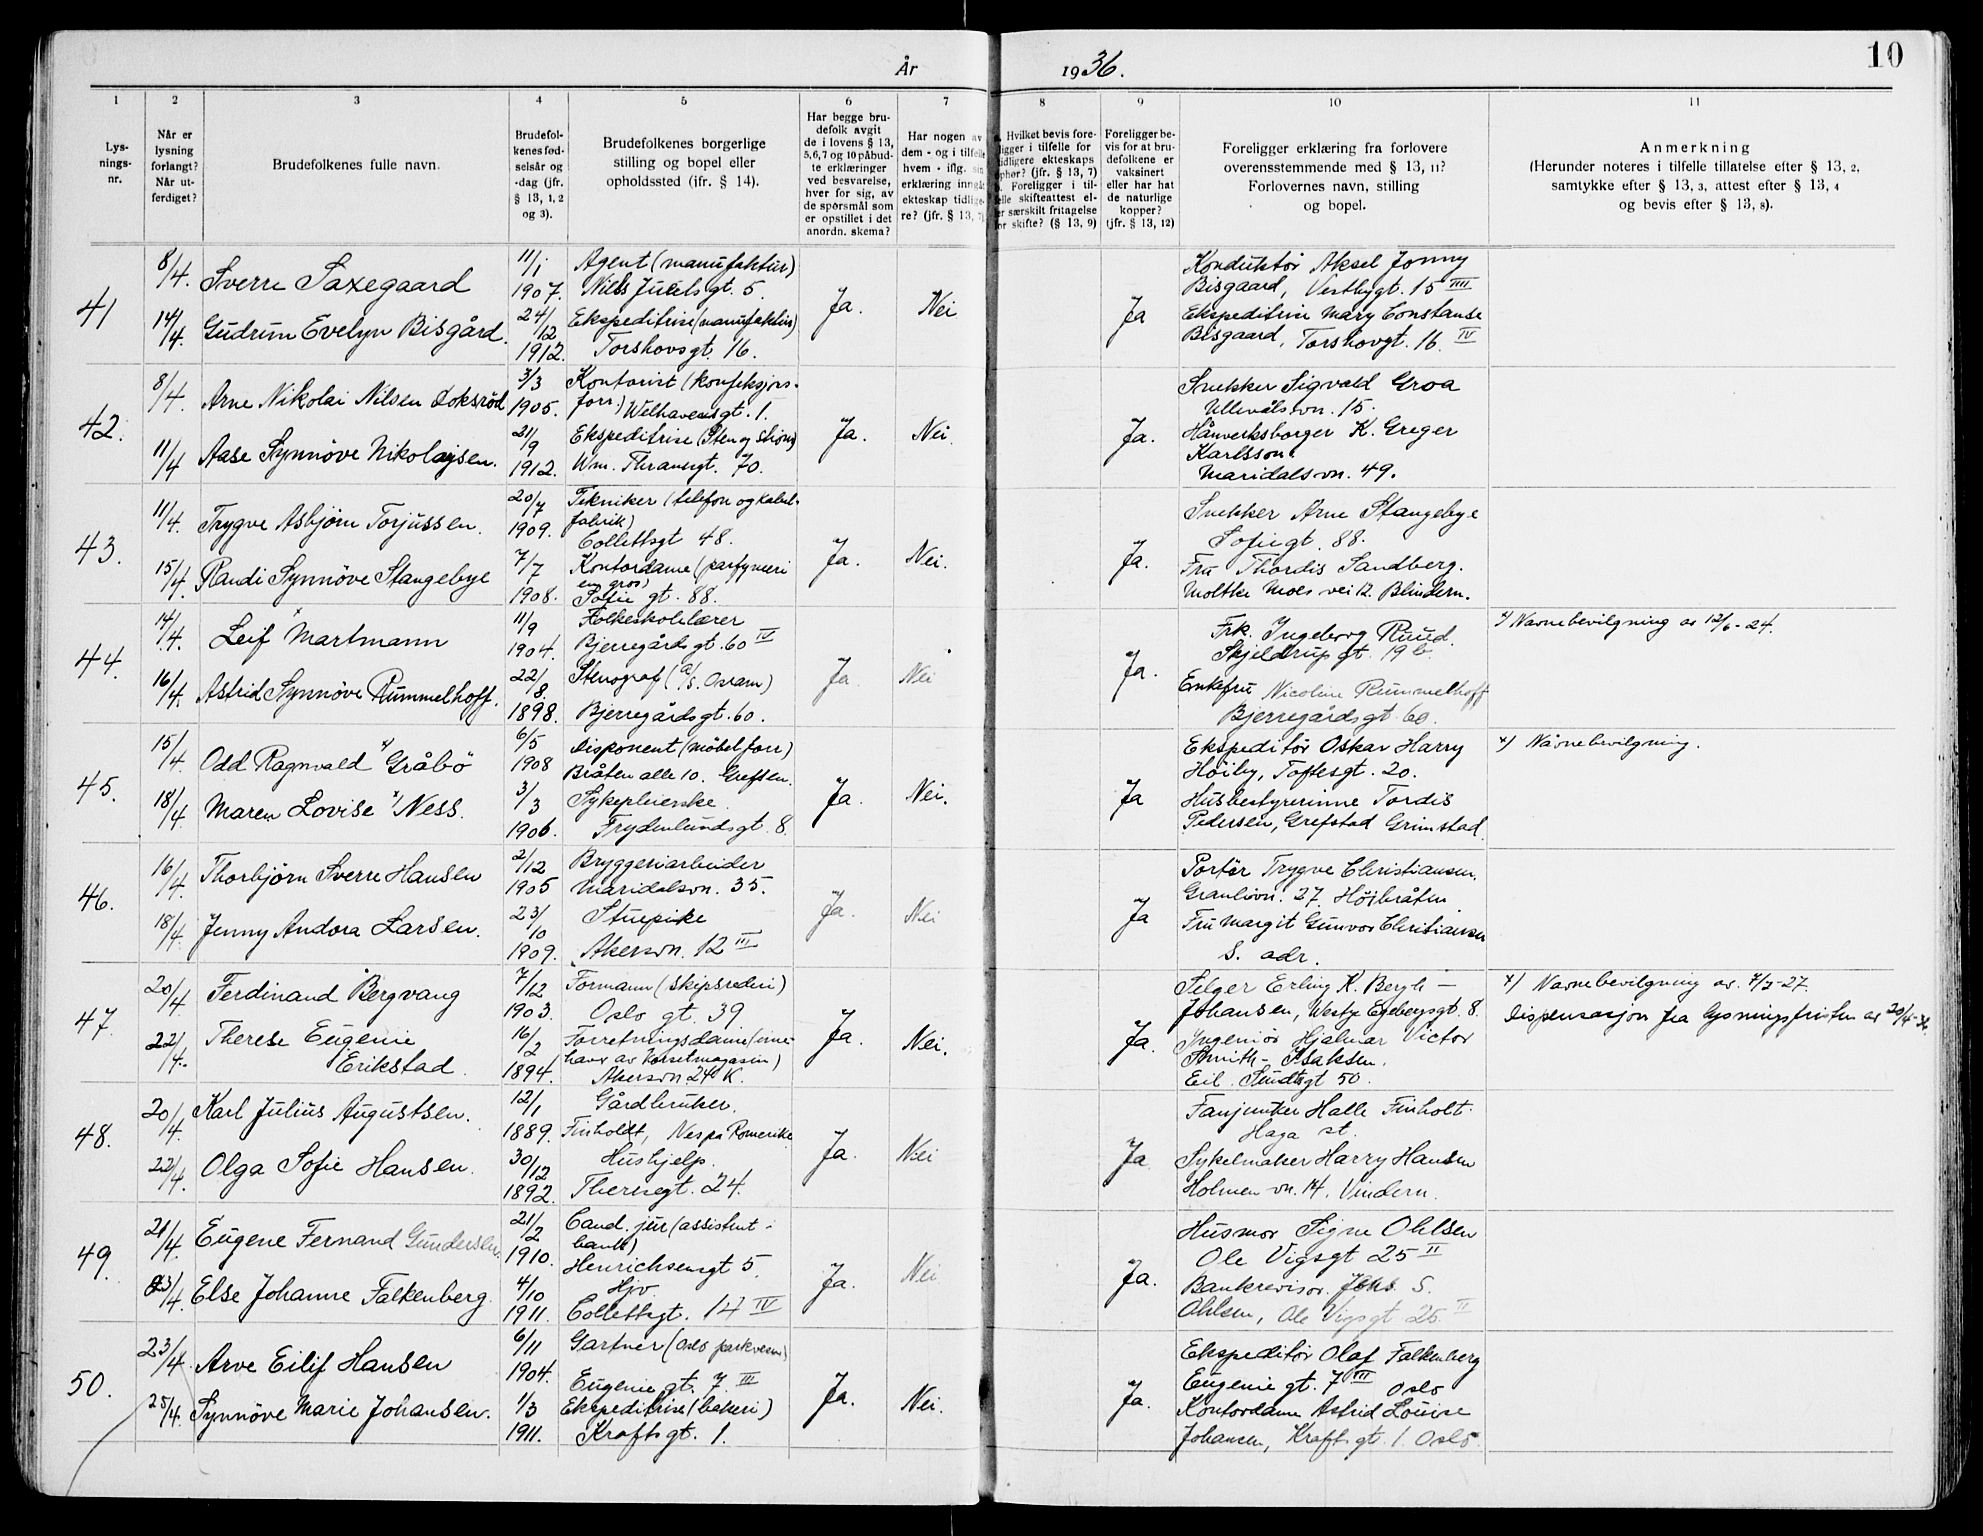 År 1936.
10
1 2 3 4 5 6 7 8 9 10 11
Lys-
nings-
nr.
Når er
lysning
forlangt?
Når ut-
ferdiget?
Brudefolkenes fulle navn.
Brudefol-
kenes fød-
selsår og
-dag (jfr.
§ 13, 1, 2
og 3).
Brudefolkenes borgerlige
stilling og bopel eller
opholdssted (ifr. § 14).
Har begge bru-
defolk avgit
de i lovens § 13,
5,6,7 og 10 påbud-
te erklæringer
ved besvarelse,
hver for sig, av
de spørsmål som
er opstillet i det
anordn. skema?
Har nogen av
dem - og i tilfelle
hvem - iflg. sin
erklæring inngåt
ekteskap tidlige-
re? (jfr. § 13, 7)
Hvilket bevis fore-
ligger i tilfelle for
tidligere ekteskaps
ophør? (jfr. § 13, 7)
Foreligger i til-
felle skifteattest el-
er særskilt fritagelse
for skifte? (§ 13, 9)
Foreligger be-
vis for at bru-
defolkene er
vaksinert
eller har hat
de naturlige
kopper?
(jfr. § 13, 12)
Foreligger erklæring fra forlovere
overensstemmende med § 13, 11?
Forlovernes navn, stilling
og bopel.
Anmerkning
(Herunder noteres i tilfelle tillatelse efter § 13, 2,
samtykke efter § 13, 3, attest efter § 13, 4
og bevis efter § 13, 8).
41
8/4.
Sverre Saxegaard
11/1
1907.
Agent (manufaktur)
Nils Juels gt. 5.
14/4.
Gudrun Evelyn Bisgård.
24/12
1912.
Ekspeditrise (manufaktur)
Torshovsgt. 16.
Ja.
Nei
Ja
Konduktør Aksel Jonny
Bisgaard, Vestbygt. 15 IIII
Ekspeditrise Mary Constanse
Bisgaard, Torshovgt. 16. IV
42.
8/4.
Arne Nikolai Nilsen Loksrød
3/3
1905.
Kontorist (konfeksjons-
forr.) Welhavensgt. 1.
11/4
Aase Synnöve Nikolajsen.
21/9
1912.
Ekspeditrise (Sten og Ström)
Wm. Thranesgt. 70.
Ja.
Nei.
Ja.
Snekker Sigvald Groa
Ullevålsvn. 15.
Håndverksborger K. Greger
Karlsson.
Maridalsvn. 49.
43.
11/4.
Trygve Asbjörn Torjussen.
20/7
1909.
Tekniker (telefon og kabel-
fabrik)
Collettsgt 48.
15/4.
Randi Synnöve Stangebye
7/7
1908.
Kontordame (parfymeri
en gros)
Sofie gt. 88.
Ja.
Nei.
Ja.
Snekker Arne Stangebye
Sofiegt. 88.
Fru Thordis Sandberg.
Moltke Moes vei 12. Blindern.
44.
14/4.
Leif x Martmann
11/9
1904.
Folkeskolelærer
Bjerregårds gt. 60 IV
16/4.
Astrid Synnöve Rummelhoff.
22/8.
1898.
Stenograf (a/s. Osram)
Bjerregårdsgt. 60.
Ja.
Nei
Ja.
Frk. Ingeborg Ruud.
Skjeldrups gt. 19 b.
Enkefru Nicoline Rummelhoff
Bjerregårds gt. 60.
x) Navnebevilgning av 12/6-24.
45.
15/4.
Odd Ragnvald x) Gråbö
6/5
1908
Disponent (möbelforr)
Bråten alle 10. Grefsen.
18/4.
Maren Lovise x) Ness.
3/3
1906.
Sykepleierske.
Frydenlundsgt. 8.
Ja.
Nei.
Ja
Ekspeditör Oskar Harry
Höiby, Toftesgt. 20.
Husbestyrerinne Tordis
Pedersen, Grefstad Grimstad.
x) Navnebevilgning.
46.
16/4.
Thorbjörn Sverre Hansen
2/12
1905
Bryggeriarbeider
Maridalsvn. 35.
18/4.
Jenny Andora Larsen.
23/10
1909.
Stuepike
Akersvn. 12 III
Ja.
Nei
Ja
Portör Trygve Christiansen.
Granlivn. 27. Höibråten.
Fru Margit Gunvor Christiansen
S. adr.
47.
20/4.
Ferdinand x Bergvang
7/12
1903.
Formann (skipsrederi)
Oslo gt. 39
22/4.
Therese Eugenie
Erikstad.
16/2
1894.
Forretningsdame (inne-
haver av Korsetmagasin)
Akersvn. 24 K.
Ja.
Nei.
Ja.
Selger Erling K. Bergh-
Johansen, Westye Egebergsgt. 8.
Ingeniör Hjalmar Victor
Smith-Isaksen.
Eil. Sundtsgt 50.
x) Navnebevilgning av. 7/3-27.
Dispensasjon fra lysningsfristen av 20/4-36.
48.
20/4.
Karl Julius Augustsen.
12/1
1889.
Gårdbruker.
Finholdt, Nes på Romerike.
22/4.
Olga Sofie Hansen.
30/12
1892.
Hushjelp.
Theresegt. 24.
Ja.
Nei
Ja
Fanjunker Halle Finholt.
Haga st.
Sykelmaker Harry Hansen
Holmen vn. 14. Vindern.
49.
21/4.
Eugene Fernand Gundersen.
21/2
1910.
Cand. jur (assistent-
bank)
Henrichsensgt 5.
23/4.
Else Johanne Falkenberg.
4/10
1911.
Hjv.
Collettsgt. 14 IV
Ja.
Nei
Ja.
Husmor Signe Ohlsen
Ole Vigsgt 25 II
Bankrevisor Johs. S.
Ohlsen, Ole Vigsgt 25 II
50.
23/4.
Arve Eilif Hansen
6/11
1904.
Gartner (Oslo parkvesen)
Eugenie gt. 7 III
25/4.
Synnöve Marie Johansen.
1/3
1911.
Ekspeditrise (bakeri)
Krafts gt. 1.
Ja.
Nei.
Ja.
Ekspeditör Olaf Falkenberg
Eugenie gt. 7 III Oslo
Kontordame Astrid Louise
Johansen, Krafts gt. 1. Oslo.